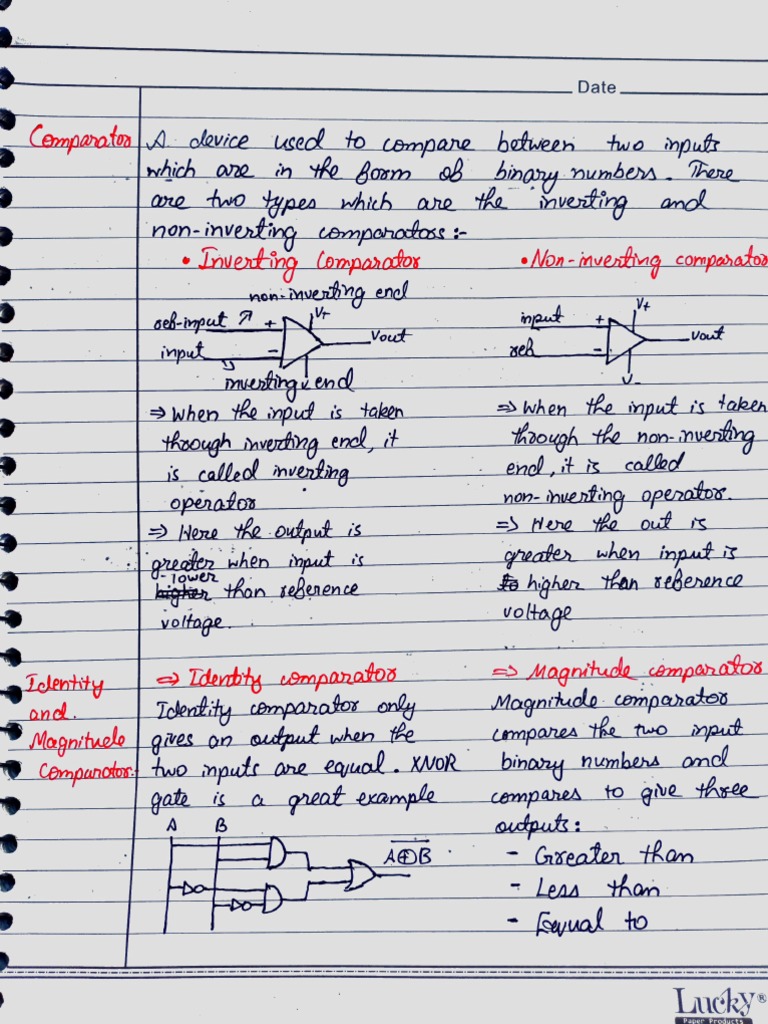 Date
Comparator
A device used to compare between two inputs
which are in the form of binary numbers. There
are two types which are the inverting and
non-inverting comparators:-
• Inverting Comparator
non-inverting end
ref-input ↗ + V+
Vout
input -
inverting end V-
⇒ When the input is taken
through inverting end, it
is called inverting
operator
⇒ Here the output is
greater when input is
lower
higher than reference
voltage.
• Non-inverting comparator
V+
input +
Vout
ref -
V-
⇒ When the input is taken
through the non-inverting
end, it is called
non-inverting operator.
⇒ Here the out is
greater when input is
to higher than reference
voltage
Identity
and
Magnitude
Comparator:-
⇒ Identity comparator
Identity comparator only
gives an output when the
two inputs are equal. XNOR
gate is a great example
A B
A⊕B
⇒ Magnitude comparator
Magnitude comparator
compares the two input
binary numbers and
compares to give three
outputs:
- Greater than
- Less than
- Equal to
Lucky®
Paper Products